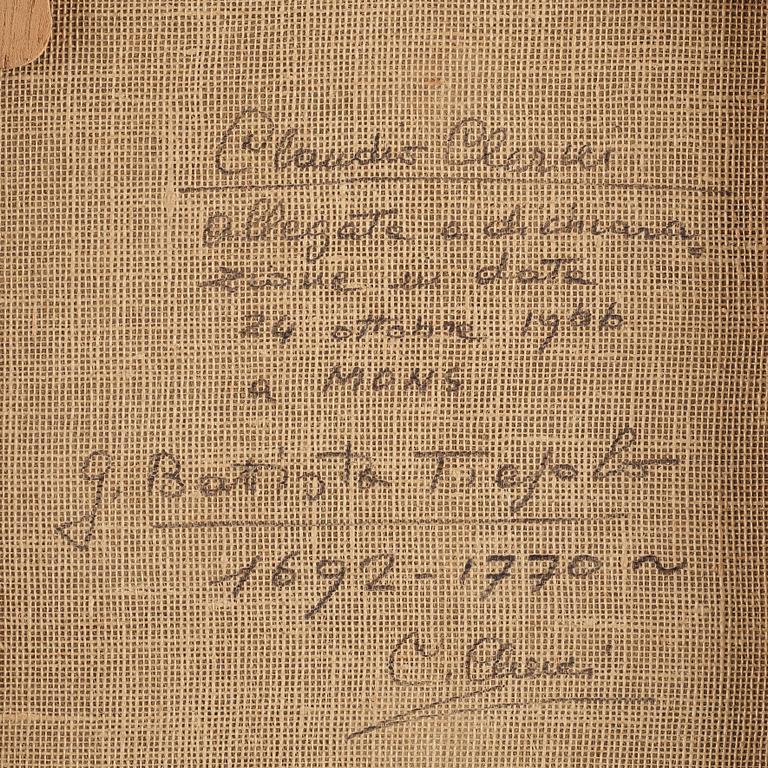 Claudio Clerici
allegata a dichiara-
zione in data
24 ottobre 1966
a MONS
G. Battista Tiepolo
1692-1770 ~
C. Clerici